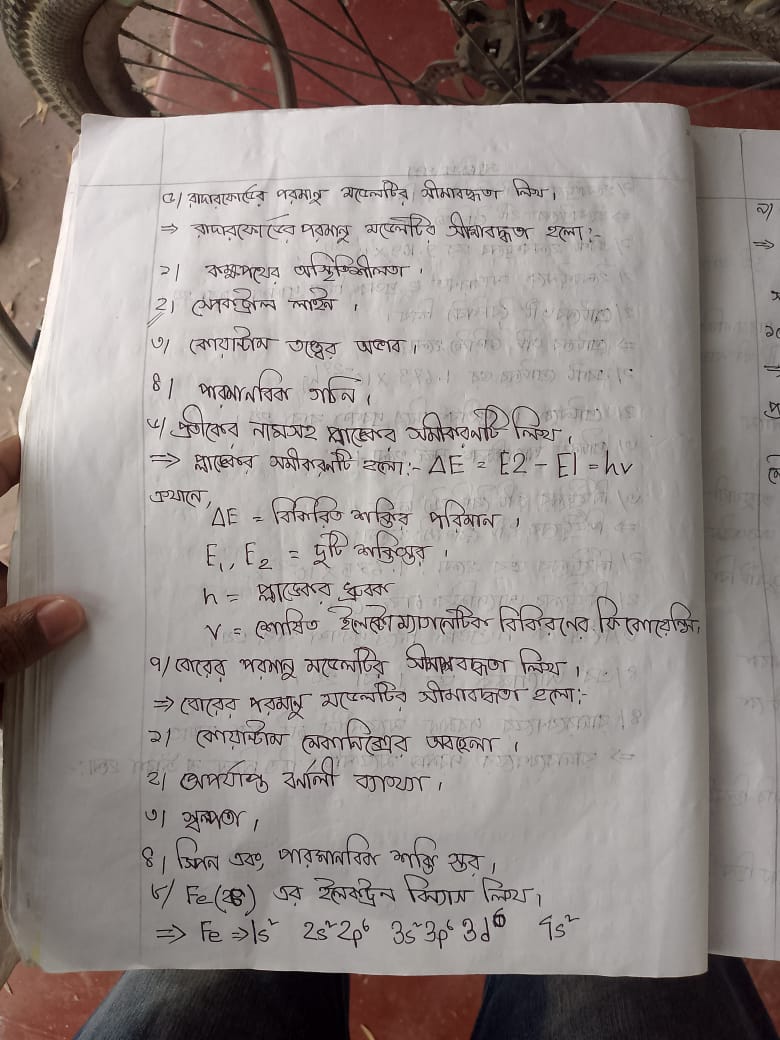 ৫/ রাদারফোর্ডের পরমানু মডেলটির সীমাবদ্ধতা লিখ।
⇒ রাদারফোর্ডের পরমানু মডেলটির সীমাবদ্ধতা হলো:-
১। কক্ষপথের অস্থিতিশীলতা।
২। স্পেকট্রাল লাইন।
৩/ কোয়ান্টাম তত্ত্বের অভাব।
৪। পারমানবিক গঠন।
৬/ প্রতীকের নামসহ প্লাঙ্কের সমীকরণটি লিখ।
⇒ প্লাঙ্কের সমীকরণটি হলো:- ΔE = E2 - E1 = hv
এখানে,
ΔE = বিকিরিত শক্তির পরিমান।
E₁, E₂ = দুটি শক্তিস্তর।
h = প্লাঙ্কের ধ্রুবক
v = শোষিত ইলেক্টোম্যাগনেটিক বিকিরনের ফ্রিকোয়েন্সি।
৭/ বোরের পরমানু মডেলটির সীমাবদ্ধতা লিখ।
⇒ বোরের পরমানু মডেলটির সীমাবদ্ধতা হলো:-
১। কোয়ান্টাম মেকানিক্সের অবহেলা।
২। অপর্যাপ্ত বর্নালী ব্যাখ্যা।
৩। স্বল্পতা।
৪। স্পিন এবং পারমানবিক শক্তি স্তর।
৮/ Fe(26) এর ইলেকট্রন বিন্যাস লিখ।
⇒ Fe ⇒ 1s² 2s² 2p⁶ 3s² 3p⁶ 3d⁶ 4s²